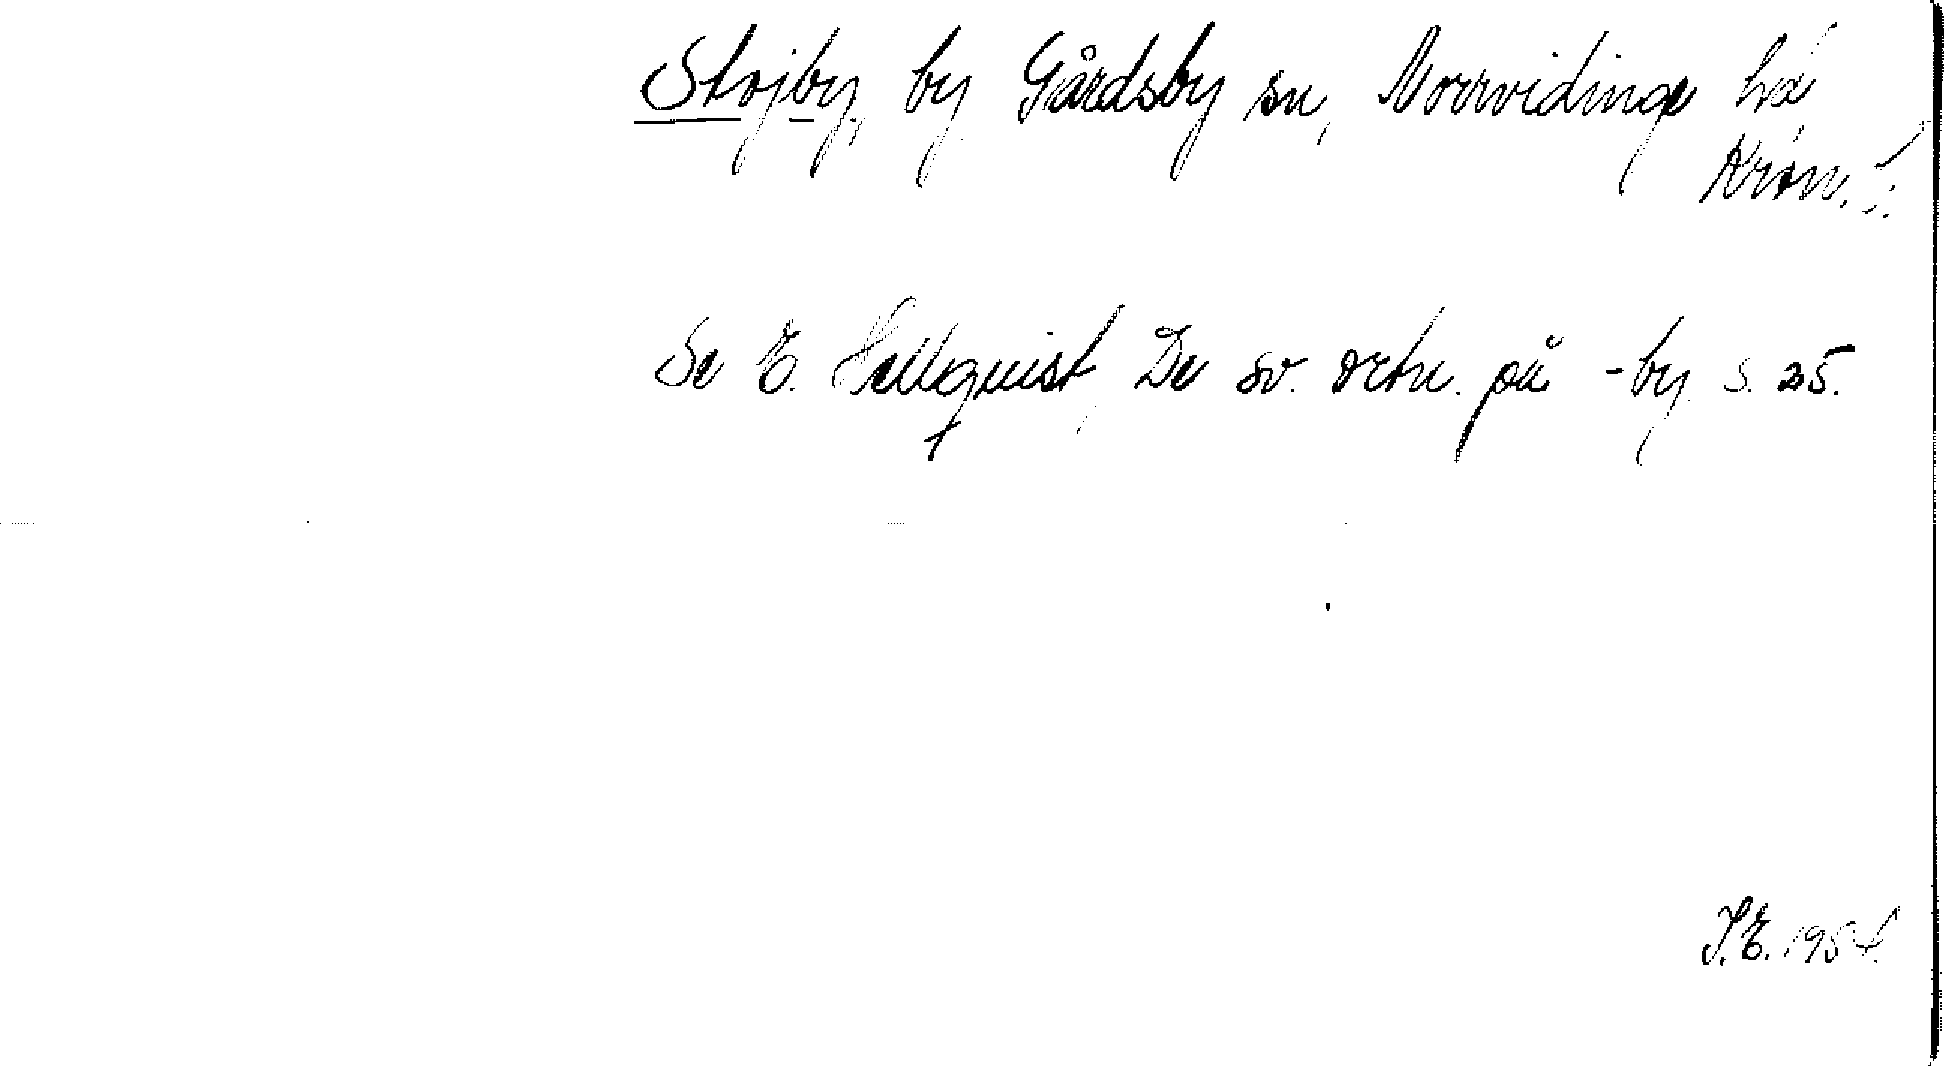 Stojby, by Gårdsby sn, Norrvidinge hd
Kron. l:
Se E. Hellquist, De sv. ortn. på -by s. 25.
I.E. 1954.